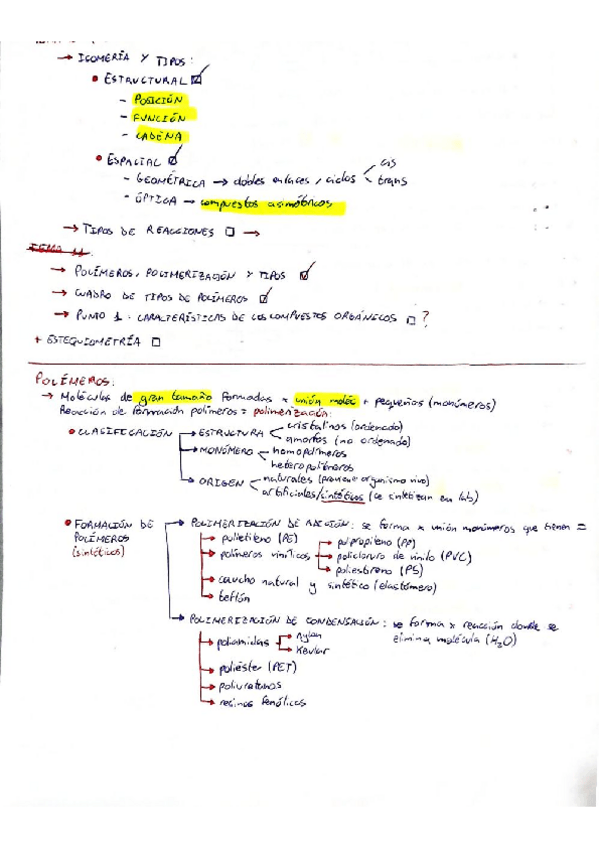 → ISOMERÍA Y TIPOS:
• ESTRUCTURAL ☑
- POSICIÓN
- FUNCIÓN
- CADENA
• ESPACIAL ☑
- GEOMÉTRICA → dobles enlaces, ciclos < cis
trans
- ÓPTICA → compuestos asimétricos
→ TIPOS DE REACCIONES ☐ →
TEMA 11.
→ POLÍMEROS, POLIMERIZACIÓN Y TIPOS ☑
→ CUADRO DE TIPOS DE POLÍMEROS ☑
→ PUNTO 1. CARACTERÍSTICAS DE LOS COMPUESTOS ORGÁNICOS ☐ ?
+ ESTEQUIOMETRÍA ☐
POLÍMEROS:
→ Moléculas de gran tamaño formadas x unión moléc + pequeñas (monómeros)
Reacción de formación polímeros = polimerización:
• CLASIFICACIÓN → ESTRUCTURA < cristalinos (ordenado)
amorfos (no ordenado)
→ MONÓMERO < homopolímeros
heteropolímeros
→ ORIGEN < naturales (proviene organismo vivo)
artificiales/sintéticos (se sintetizan en lab)
• FORMACIÓN DE → POLIMERIZACIÓN DE ADICIÓN: se forma x unión monómeros que tienen =
POLÍMEROS → polietileno (PE) → polipropileno (PP)
(sintéticos) → polímeros vinílicos → policloruro de vinilo (PVC)
→ poliestireno (PS)
→ caucho natural y sintético (elastómero)
→ teflón
→ POLIMERIZACIÓN DE CONDENSACIÓN: se forma x reacción donde se
elimina molécula (H₂O)
→ poliamidas → nylon
→ kevlar
→ poliéster (PET)
→ poliuretanos
→ resinas fenólicas